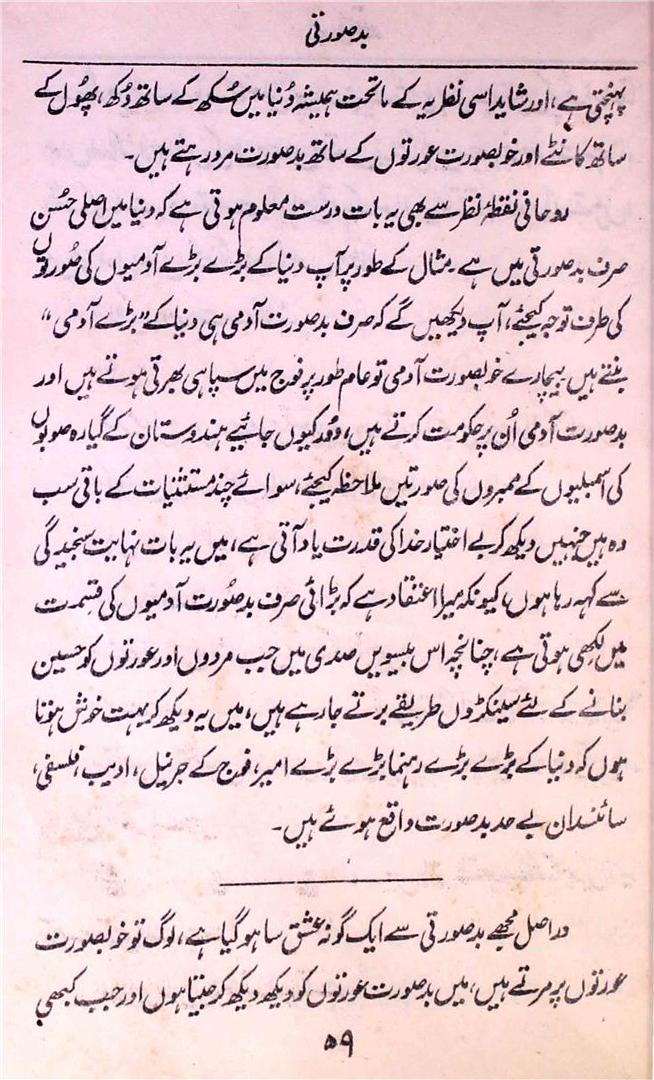 بدصورتی
پہنچتی ہے، اور شاید اسی نظریہ کے ماتحت ہمیشہ دُنیا میں سُکھ کے ساتھ دُکھ، پھُول کے
ساتھ کانٹے اور خوبصورت عورتوں کے ساتھ بدصورت مرد رہتے ہیں۔
روحانی نقطۂ نظر سے بھی یہ بات درست معلوم ہوتی ہے کہ دنیا میں اصلی حُسن
صرف بدصورتی میں ہے۔ مثال کے طور پر آپ دنیا کے بڑے بڑے آدمیوں کی صُورتوں
کی طرف توجہ کیجئے، آپ دیکھیں گے کہ صرف بدصورت آدمی ہی دنیا کے ”بڑے آدمی“
بنتے ہیں بیچارے خوبصورت آدمی تو عام طور پر فوج میں سپاہی بھرتی ہوتے ہیں اور
بدصورت آدمی اُن پر حکومت کرتے ہیں، دُور کیوں جائیے ہندوستان کے گیارہ صوبوں
کی اسمبلیوں کے ممبروں کی صورتیں ملاحظہ کیجئے، سوائے چند مستثنیات کے باقی سب
وہ ہیں جنہیں دیکھ کر بے اختیار خدا کی قدرت یاد آتی ہے، میں یہ بات نہایت سنجیدگی
سے کہہ رہا ہوں، کیونکہ میرا اعتقاد ہے کہ بڑائی صرف بدصُورت آدمیوں کی قسمت
میں لکھی ہوتی ہے، چنانچہ اس بیسویں صدی میں جب مردوں اور عورتوں کو حسین
بنانے کے لئے سینکڑوں طریقے برتے جا رہے ہیں، میں یہ دیکھ کر بہت خوش ہوتا
ہوں کہ دنیا کے بڑے بڑے رہنما بڑے بڑے امیر، فوج کے جرنیل، ادیب، فلسفی،
سائنسدان بے حد بدصورت واقع ہوئے ہیں۔
دراصل مجھے بدصورتی سے ایک گونہ عشق سا ہو گیا ہے، لوگ تو خوبصورت
عورتوں پر مرتے ہیں، میں بدصورت عورتوں کو دیکھ دیکھ کر جیتا ہوں اور جب کبھی
۵۹